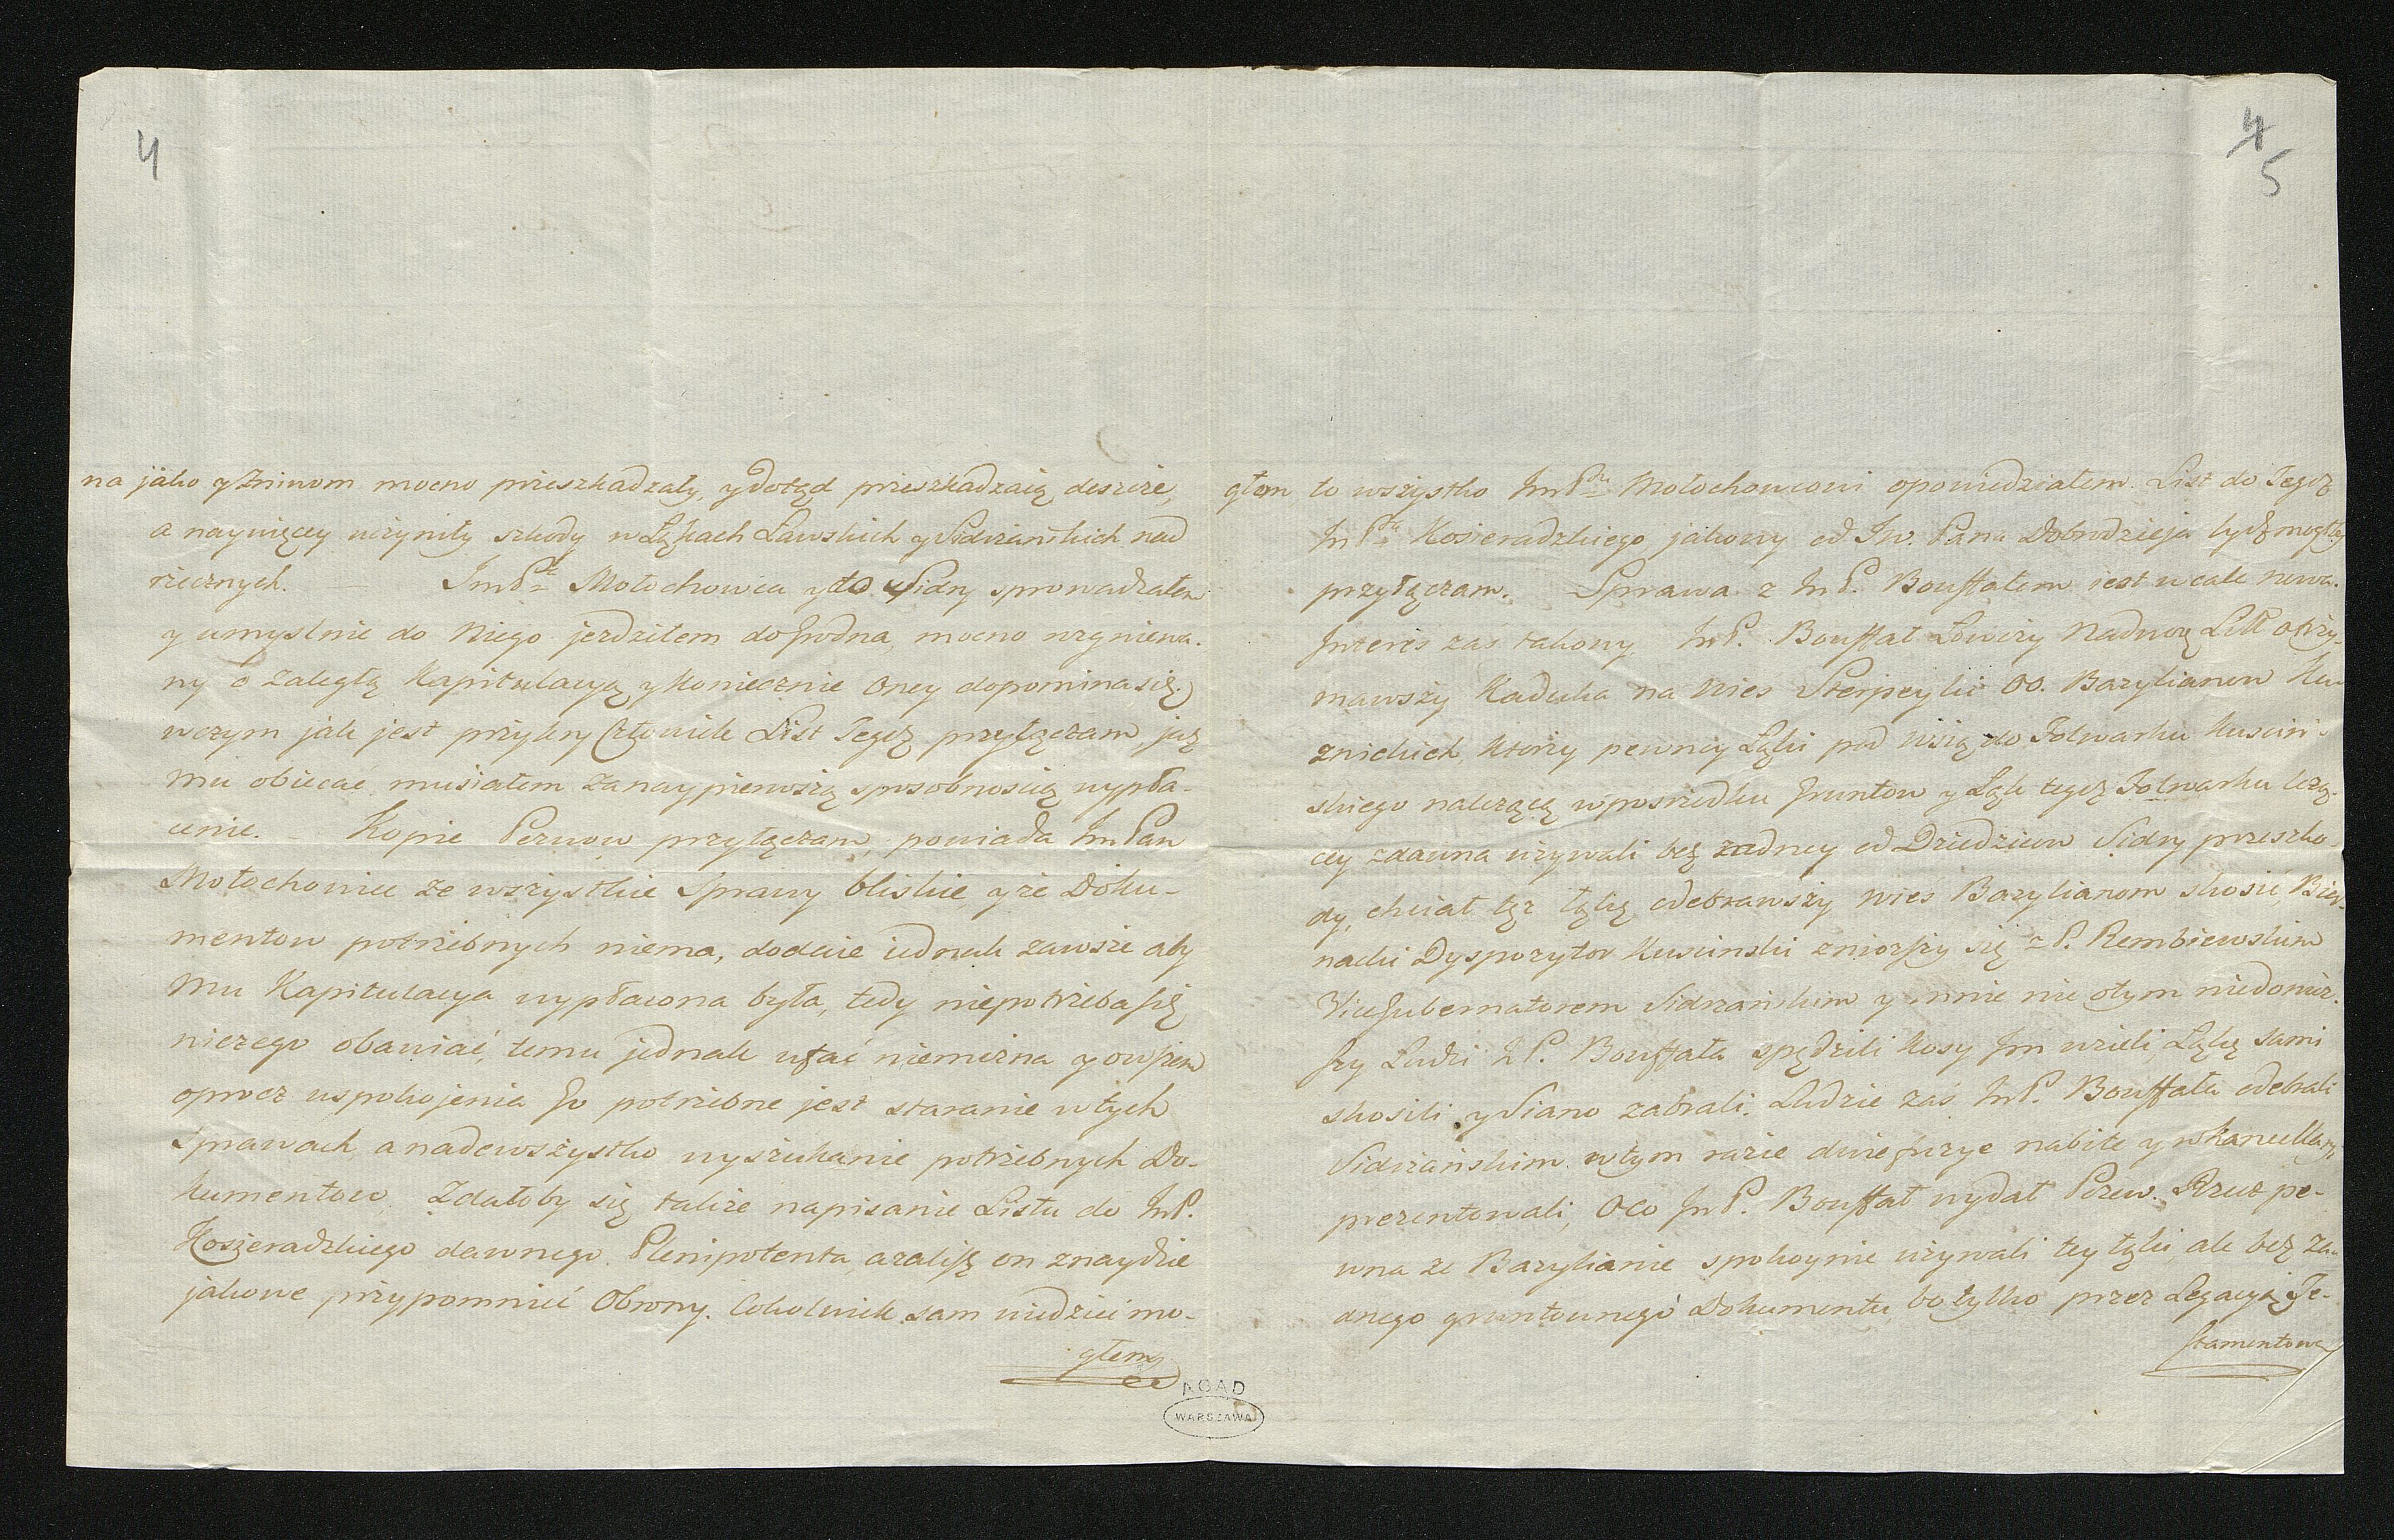 4
na jako y żniwom mocno przeszkadzały, y dotąd przeszkadzaią deszcze,
a naywięcey uczyniły szkody w Łąkach Ławskich y Sidrzańskich nad
rzecznych. — ImPa Mołochowca y do Sidry sprowadzałem
y umyslnie do Niego jezdziłem do Grodna, mocno urgniewa-
ny o zaległą Kapitulacyą y koniecznie oney dopomina się.
w czym jak jest przykry Człowiek List Tegoż przyłączam, jaż
mu obiecać musiałem za naypierwszą sposobnoscią wypła-
cenie. — Kopie Pozwow przyłączam, powiada ImPan
Mołochowiec że wszystkie Sprawy bliskie, y że Doku-
mentow potrzebnych niema, dodaie iednak zawsze aby
mu Kapitulacya wypłacona była, tedy niepotrzeba się
niczego obawiać, temu jednak ufać niemożna y owszem
oprocz uspokojenia Go potrzebne jest staranie w tych
Sprawach, a nadewszystko wyszukanie potrzebnych Do-
kumentow. Zdałoby się także napisanie Listu do ImP.
Kosieradzkiego dawnego Plenipotenta azaliż on znaydzie
jakowe przypomnieć Obrony. Cokolwiek sam wiedzieć mo-
głem
AGAD
WARSZAWA
4
5
głem, to wszystko ImPu Mołochowcowi opowiedziałem. List do Tegoż
ImPa Kosieradzkiego jakowy od Jw. Pana Dobrodzieja
przyłączam. Sprawa z ImP. Bouffałem iest wcale nowa.
Interes zas takowy, ImP. Bouffał Łowczy Nadwor Litt otrzy-
mawszy Kaduka na Wies Sterpeyki OO. Bazylianow Ku-
znickich, ktorzy pewney Łąki pod Wsią do Folwarku Kuscin-
skiego należącą w posrzedku Gruntow y Łąk tegoż Folwarku leżą-
cey zdawna używali bez żadney od Dziedzicow Sidry przeszko-
dy, chciał tęż łąkę odebrawszy wies Bazylianom skosić, Bier-
nacki Dyspozytor Kuscinski zniozszy się z P. Rembiewskim
Vice Gubernatorem Sidrzańskim y mnie nic o tym niedonios-
szy Ludzi ImP. Bouffała spędzili Kosy Im wzieli, Łąkę sami
skosili y Siano zabrali. Ludzie zaś ImP. Bouffała odebrali
Sidrzańskim w tym razie dwie fuzye nabite y w Kancellaryi
prezentowali, Oco ImP. Bouffał wydał Pozew. Rzecz pe-
wna że Bazylianie spokoynie używali tey łąki, ale bez ża-
dnego gruntownego Dokumentu, bo tylko przez Legacyą Te-
stamentową